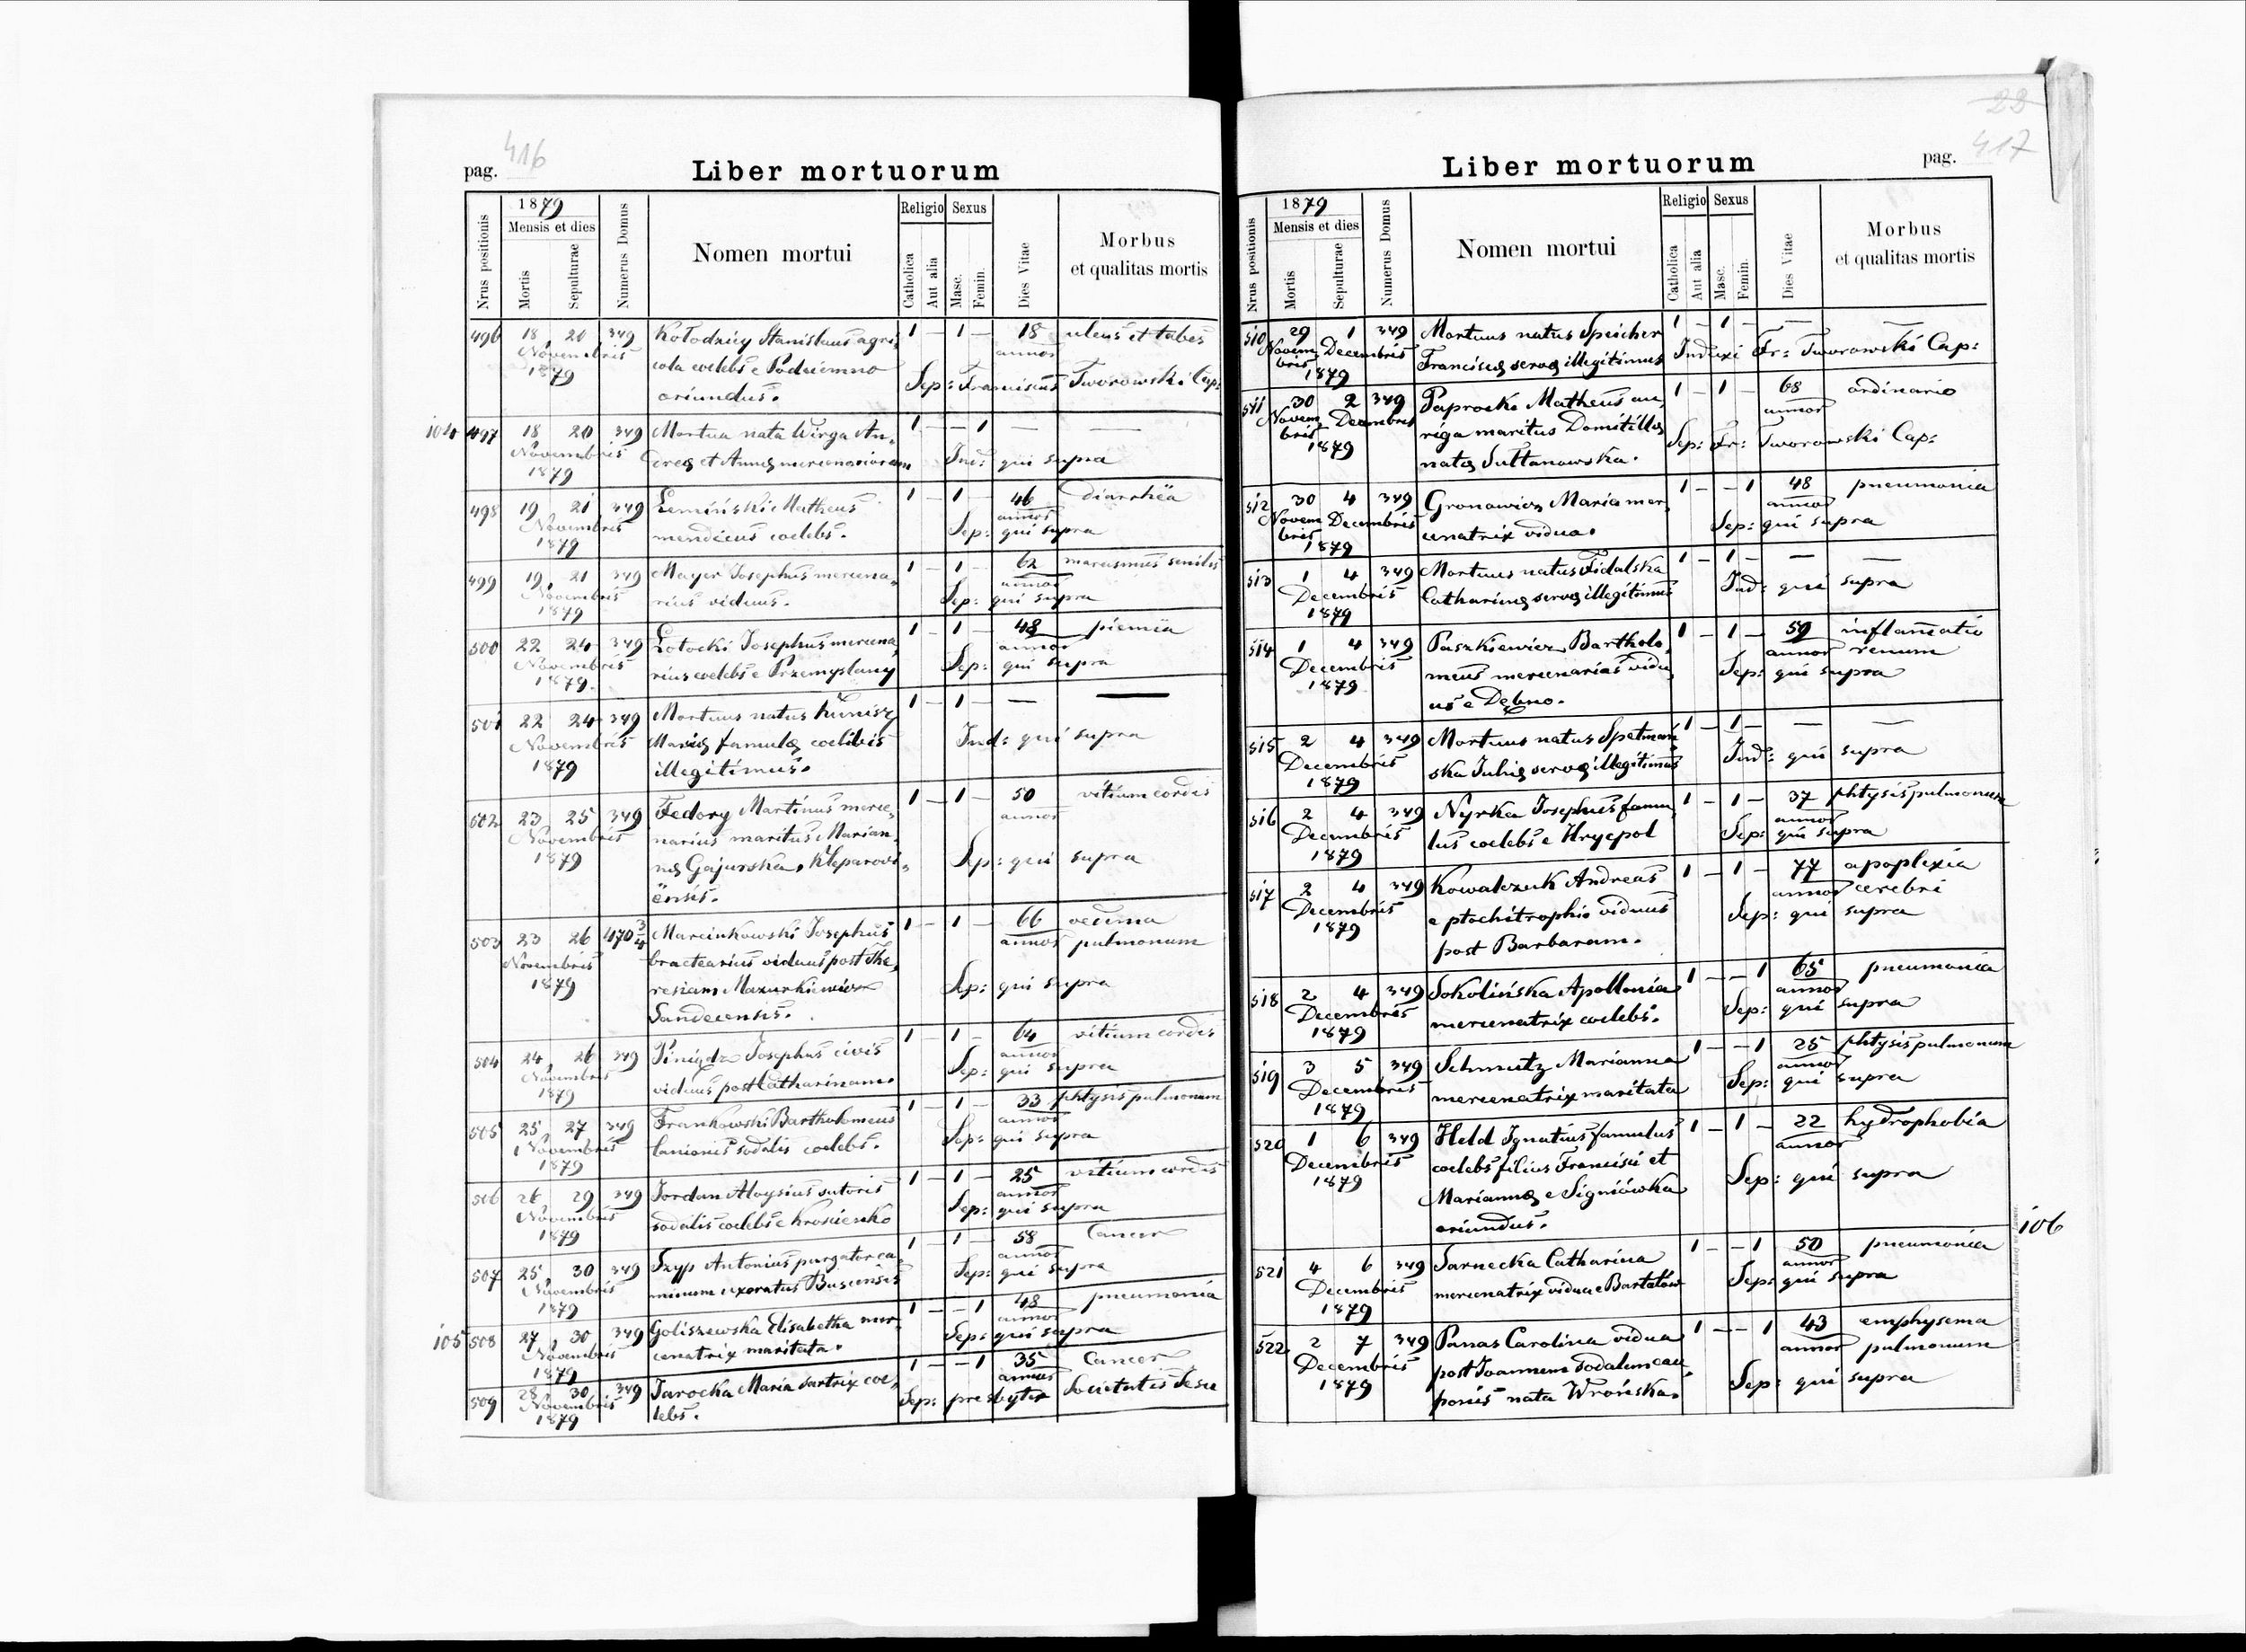 pag. 416
Liber mortuorum
Nrus positionis
1879
Mensis et dies
Mortis
Sepulturae
Numerus Domus
Nomen mortui
Religio
Catholica
Aut alia
Sexus
Masc.
Femin.
Dies Vitae
Morbus
et qualitas mortis
496 18 20 349 Kołodziéy Stanislaus agri, 1 – 1 – 18 ulcus et tabes
Novembris cola coelebs e Podciemno annor
1879 oriundus. Sep: Franciscus Tworowski Cap:
104 497 18 20 349 Mortua nata Wirga An, 1 – – 1 — —
Novembris dreæ et Annæ mercenariorum Ind: qui supra
1879
498 19 21 349 Łemiński Matheus 1 – 1 – 46 diarrhëa
Novembris mendicus coelebs. annor
1879 Sep: qui supra
499 19 21 349 Mayer Josephus mercena, 1 – 1 – 62 marasmus senilis
Novembris rius viduus. annor
1879 Sep: qui supra
500 22 24 349 Łotocki Josephus mercena, 1 – 1 – 48 piemia
Novembris rius coelebs e Przemyslany annor
1879. Sep: qui supra
501 22 24 349 Mortuus natus Kunisz 1 – 1 – — —
Novembris Mariæ famulæ coelibis Ind: qui supra
1879 illegitimus.
502 23 25 349 Fedory Martinus merce, 1 – 1 – 50 vitium cordis
Novembris narius maritus Marian, annor
1879 næ Gajurska, Kleparovi, Sep: qui supra
ënsis.
503 23 26 470 3/4 Marcinkowski Josephus 1 – 1 – 66 oedema
Novembris bractearius viduus post The, annor pulmonum
1879 resiam Mazurkiewicz Sep: qui supra
Sandecensis.
504 24 26 349 Piniądz Josephus civis 1 – 1 – 64 vitium cordis
Novembris viduus post Catharinam. annor
1879 Sep: qui supra
505 25 27 349 Frankowski Bartholomeus 1 – 1 – 33 phtysis pulmonum
Novembris lanionis sodalis coelebs. annor
1879 Sep: qui supra
506 26 29 349 Jordan Aloysius sutoris 1 – 1 – 25 vitium cordis
Novembris sodalis coelebs e Krosienko annor
1879 Sep: qui supra
507 25 30 349 Szyp Antonius purgator ca, 1 – 1 – 58 Cancer
Novembris minum uxoratus Buscensis annor
1879 Sep: qui supra
105 508 27 30 349 Goliszewska Elisabetha mer, 1 – – 1 48 pneumonia
Novembris cenatrix maritata. annor
1879 Sep: qui supra
509 28 30 349 Jarocka Maria sartrix coe, 1 – – 1 35 Cancer
Novembris lebs. annus
1879 Sep: presbyter Societatis Jesu
22
417
Liber mortuorum
pag.
Nrus positionis
1879
Mensis et dies
Mortis
Sepulturae
Numerus Domus
Nomen mortui
Religio
Catholica
Aut alia
Sexus
Masc.
Femin.
Dies Vitae
Morbus
et qualitas mortis
510 29 1 349 Mortuus natus Speicher 1 – 1 – — —
Novem Decembris Franciscæ servæ illegitimus Induxi Fr: Tworowski Cap:
bris 1879
511 30 2 349 Paprocki Matheus au, 1 – 1 – 68 ordinario
Novem Decembris riga maritus Domitillæ annor
bris 1879 natæ Sułtanowska. Sep: Fr: Tworowski Cap:
512 30 4 349 Gronowicz Maria mer, 1 – – 1 48 pneumonia
Novem Decembris cenatrix vidua. annor
bris 1879 Sep: qui supra
513 1 4 349 Mortuus natus Fidalska 1 – 1 – — —
Decembris Catharinæ servæ illegitimus Ind: qui supra
1879
514 1 4 349 Paszkiewicz Bartholo, 1 – 1 – 59 inflamatio
Decembris meus mercenarius vidu, annor renum
1879 us e Dębno. Sep: qui supra
515 2 4 349 Mortuus natus Spetmań 1 – 1 – — —
Decembris ska Juliæ servæ illegitimus Ind: qui supra
1879
516 2 4 349 Nyrka Josephus famu, 1 – 1 – 37 phtysis pulmonum
Decembris lus coelebs e Hrycpol annor
1879 Sep: qui supra
517 2 4 349 Kowalczuk Andreas 1 – 1 – 77 apoplexia
Decembris e ptochitrophio viduus annor cerebri
1879 post Barbaram. Sep: qui supra
518 2 4 349 Sokolińska Apollonia 1 – – 1 65 pneumonia
Decembris mercenatrix coelebs. annor
1879 Sep: qui supra
519 3 5 349 Schmutz Marianna 1 – – 1 25 phtysis pulmonum
Decembris mercenatrix maritata annor
1879 Sep: qui supra
520 1 6 349 Held Ignatius famulus 1 – 1 – 22 hydrophobia
Decembris coelebs filius Francisci et annor
1879 Mariannæ e Signiówka Sep: qui supra
oriundus.
106
521 4 6 349 Sarnecka Catharina 1 – – 1 50 pneumonia
Decembris mercenatrix vidua e Bartatów annor
1879 Sep: qui supra
522 2 7 349 Panas Carolina vidua 1 – – 1 43 emphysema
Decembris post Joannem sodalem cau annor pulmonum
1879 ponis nata Wrońska. Sep: qui supra